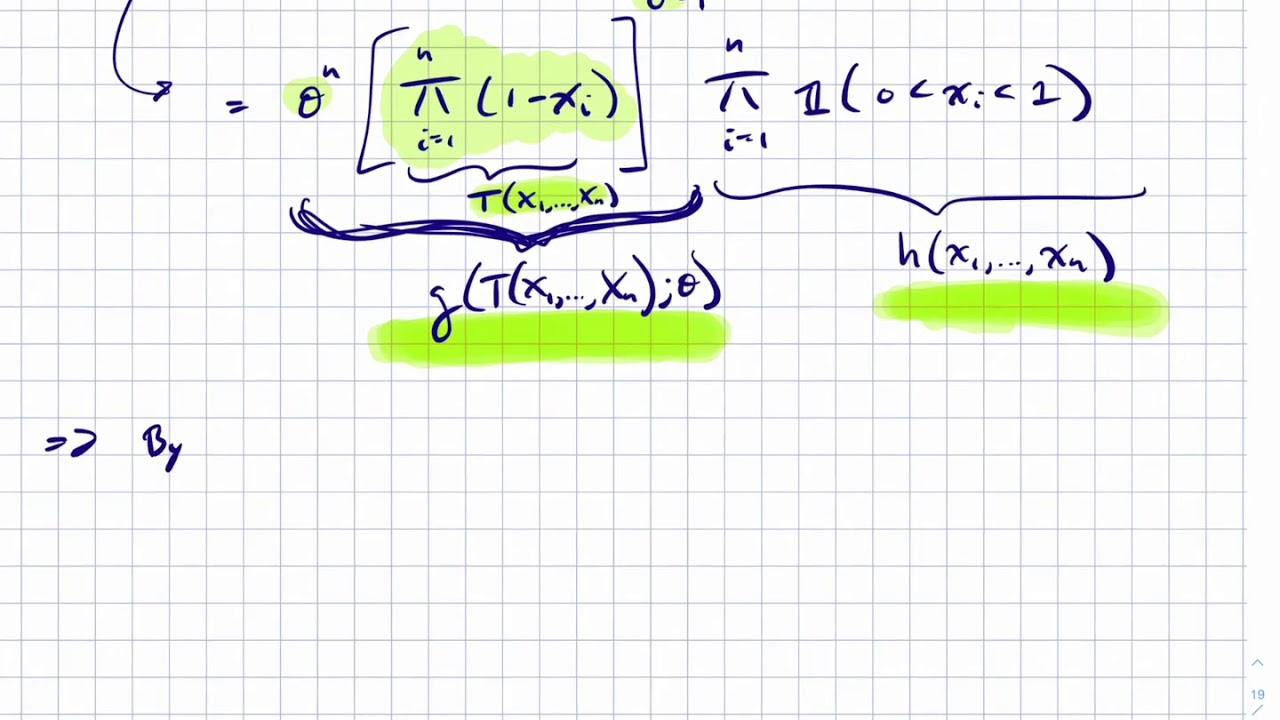 θ-1
= θ^n [ ∏_{i=1}^{n} (1-x_i) ] ∏_{i=1}^{n} 𝟙(0<x_i<1)
T(x_1,...,x_n)
g(T(x_1,...,x_n);θ)
h(x_1,...,x_n)
=> By
19